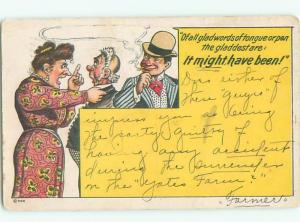 "Of all glad words of tongue or pen
the gladdest are:
It might have been!"
Does either of
these "guys"
impress you as being
the party guilty of
having any accident
during the surrender
on the "Yates Farm?"
Farmer